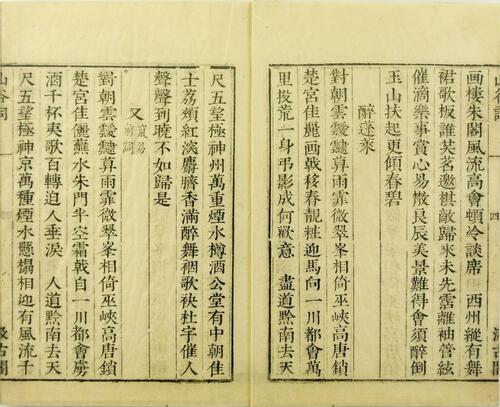 畫棲朱閣風流高會頓冷談席 西州縱有舞
裙歌板誰共茗邀棋敵歸來未先霑離袖管絃
催滴樂事賞心易散良辰美景難得會須醉倒
玉山扶起更傾春碧
醉蓬萊
對朝雲靉靆暮雨霏微翠峯相倚巫峽高唐鎖
楚宮佳麗畫戟移春靚粧迎馬向一川都會萬
里投荒一身弔影成何歡意 盡道黔南去天
四
尺五望極神州萬重煙水樽酒公堂有中朝佳
士荔頰紅淡麝臍香滿醉舞裀歌袂杜宇催人
聲聲到曉不如歸是
又 竄易前詞
對朝雲靉靆暮雨霏微翠峯相倚巫峽高唐鎖
楚宮佳麗蘸水朱門半空霜戟自一川都會虜
酒千杯夷歌百轉迫人垂淚 人道黔南去天
尺五望極神京萬重煙水懸榻相迎有風流千
山谷詞
汲古閣